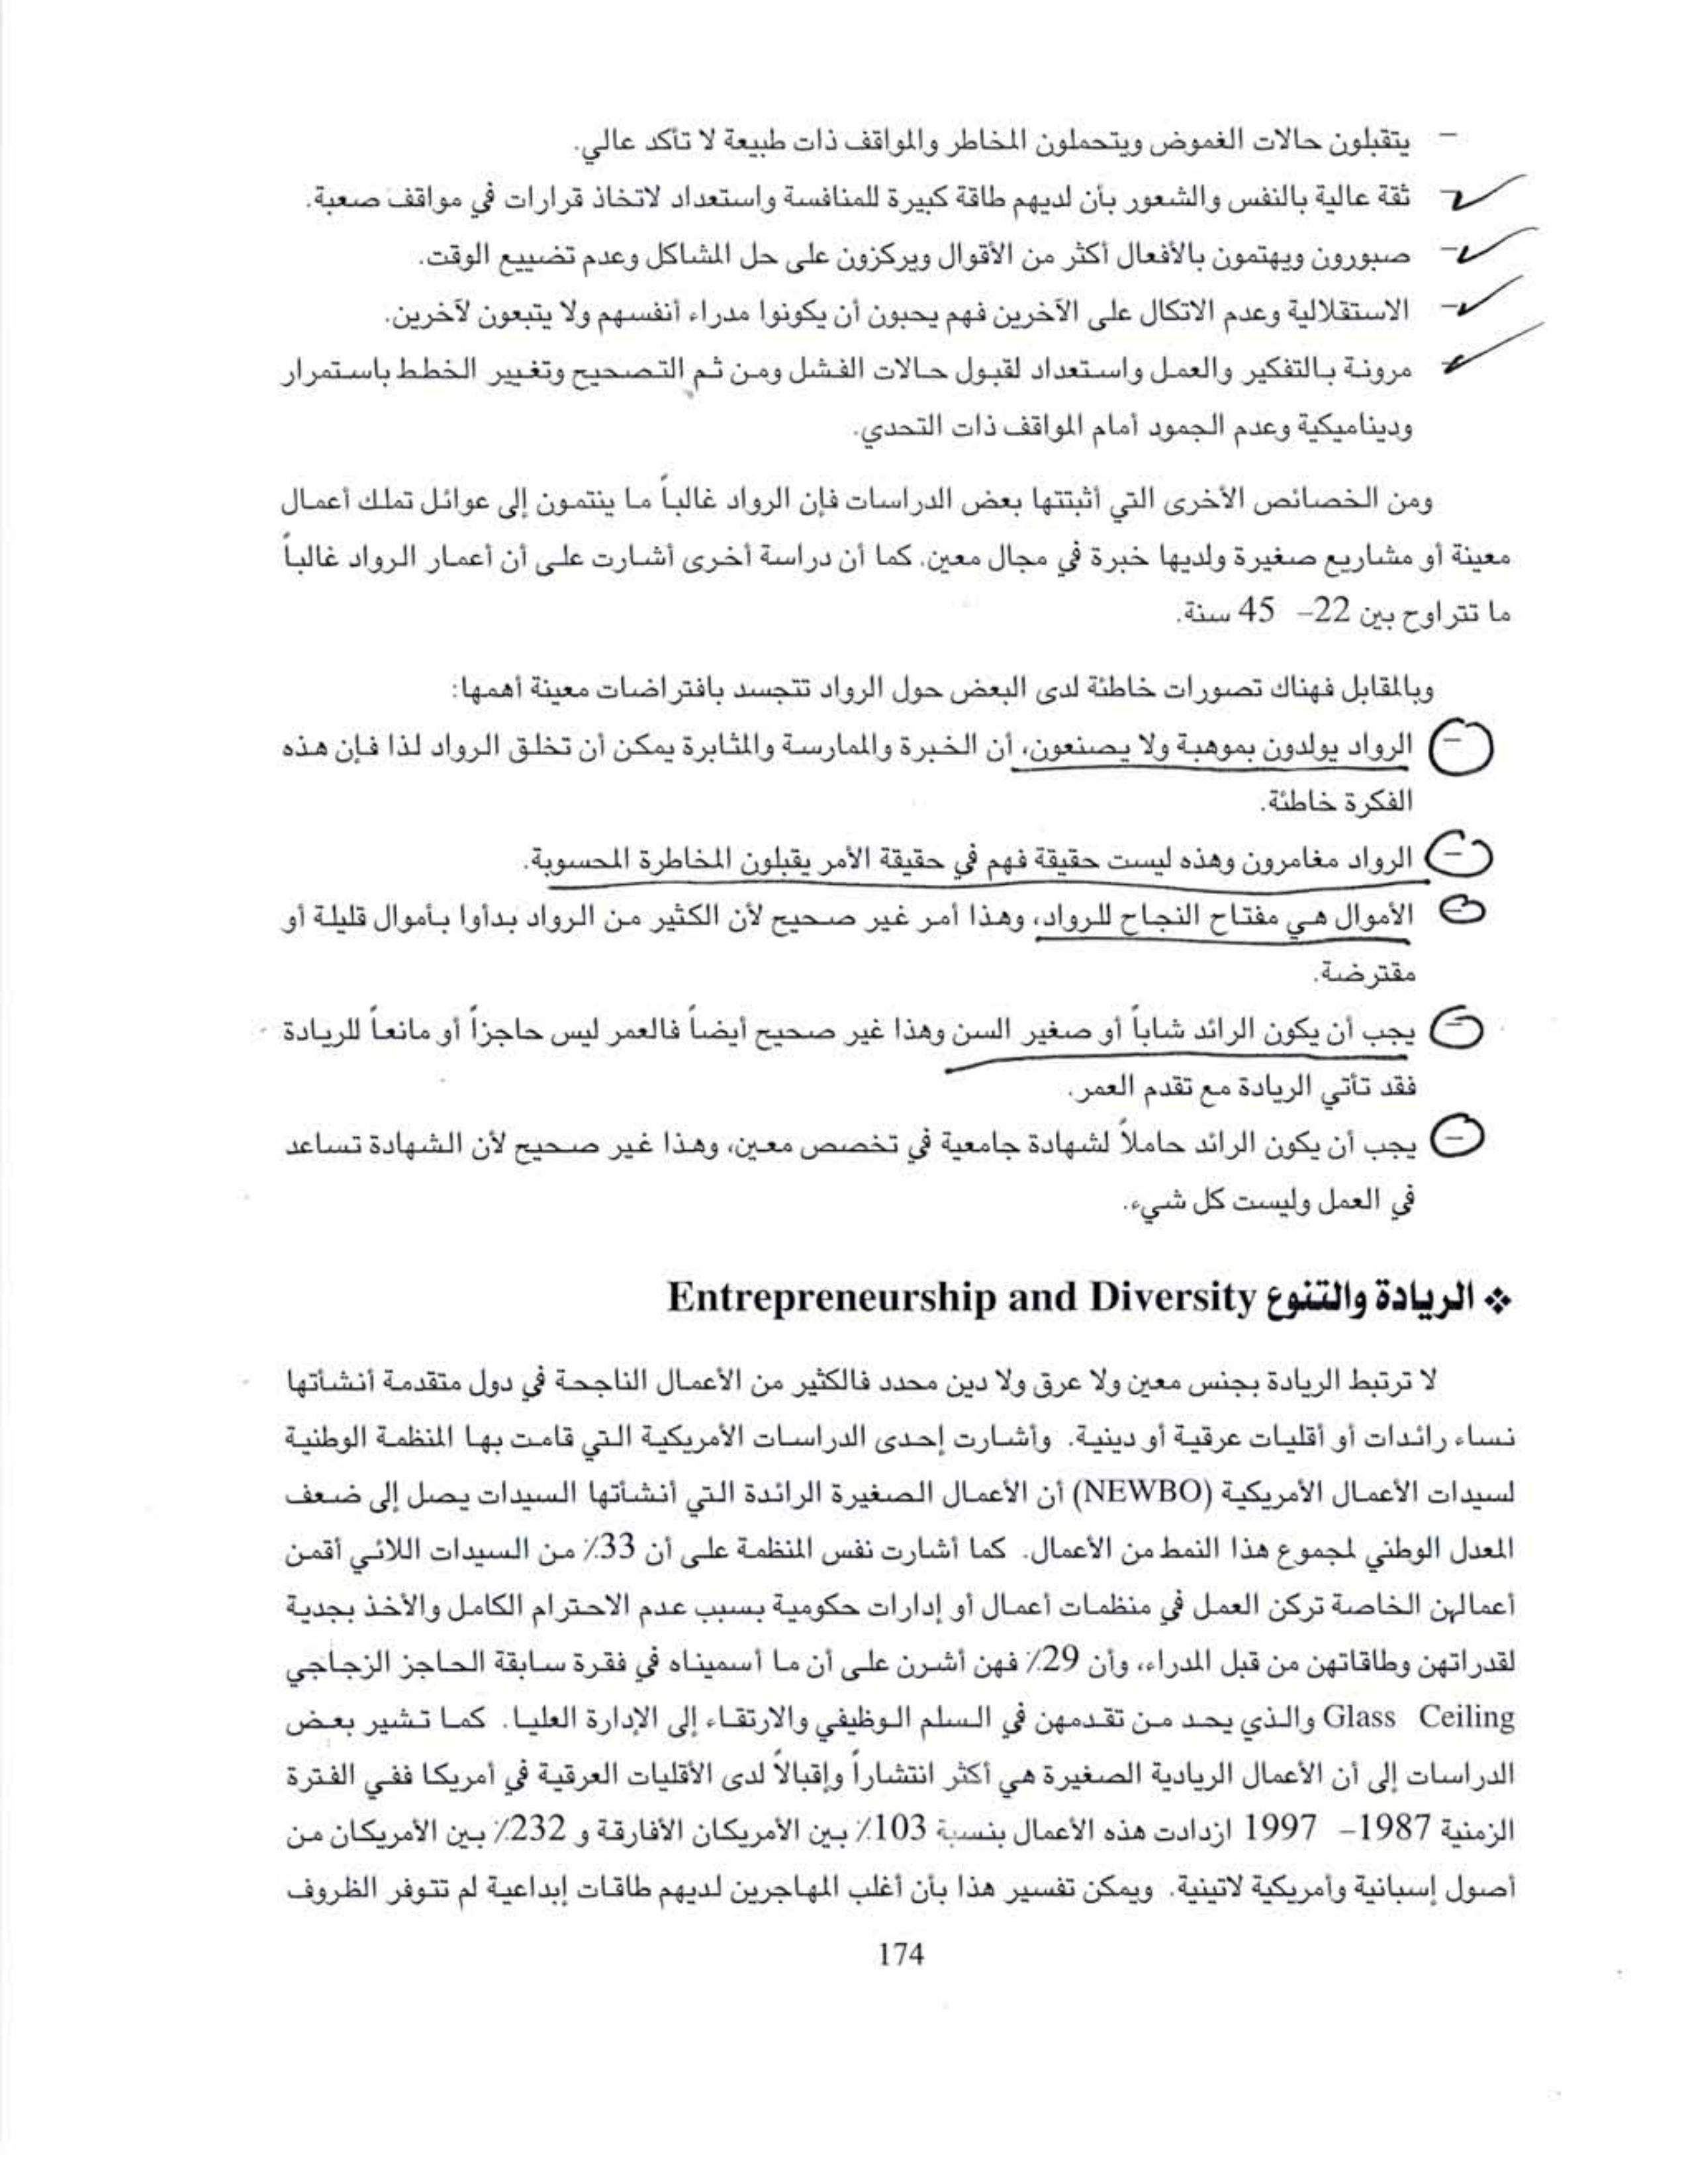 - يتقبلون حالات الغموض ويتحملون المخاطر والمواقف ذات طبيعة لا تأكد عالي.
- ثقة عالية بالنفس والشعور بأن لديهم طاقة كبيرة للمنافسة واستعداد لاتخاذ قرارات في مواقف صعبة.
- صبورون ويهتمون بالأفعال أكثر من الأقوال ويركزون على حل المشاكل وعدم تضييع الوقت.
- الاستقلالية وعدم الاتكال على الآخرين فهم يحبون أن يكونوا مدراء أنفسهم ولا يتبعون لآخرين.
- مرونة بالتفكير والعمل واستعداد لقبول حالات الفشل ومن ثم التصحيح وتغيير الخطط باستمرار
وديناميكية وعدم الجمود أمام المواقف ذات التحدي.
ومن الخصائص الأخرى التي أثبتتها بعض الدراسات فإن الرواد غالباً ما ينتمون إلى عوائل تملك أعمال
معينة أو مشاريع صغيرة ولديها خبرة في مجال معين. كما أن دراسة أخرى أشارت على أن أعمار الرواد غالباً
ما تتراوح بين 22- 45 سنة.
وبالمقابل فهناك تصورات خاطئة لدى البعض حول الرواد تتجسد بافتراضات معينة أهمها:
- الرواد يولدون بموهبة ولا يصنعون، أن الخبرة والممارسة والمثابرة يمكن أن تخلق الرواد لذا فإن هذه
الفكرة خاطئة.
- الرواد مغامرون وهذه ليست حقيقة فهم في حقيقة الأمر يقبلون المخاطرة المحسوبة.
- الأموال هي مفتاح النجاح للرواد، وهذا أمر غير صحيح لأن الكثير من الرواد بدأوا بأموال قليلة أو
مقترضة.
- يجب أن يكون الرائد شاباً أو صغير السن وهذا غير صحيح أيضاً فالعمر ليس حاجزاً أو مانعاً للريادة
فقد تأتي الريادة مع تقدم العمر.
- يجب أن يكون الرائد حاملاً لشهادة جامعية في تخصص معين، وهذا غير صحيح لأن الشهادة تساعد
في العمل وليست كل شيء.
❖ الريادة والتنوع Entrepreneurship and Diversity
لا ترتبط الريادة بجنس معين ولا عرق ولا دين محدد فالكثير من الأعمال الناجحة في دول متقدمة أنشأتها
نساء رائدات أو أقليات عرقية أو دينية. وأشارت إحدى الدراسات الأمريكية التي قامت بها المنظمة الوطنية
لسيدات الأعمال الأمريكية (NEWBO) أن الأعمال الصغيرة الرائدة التي أنشأتها السيدات يصل إلى ضعف
المعدل الوطني لمجموع هذا النمط من الأعمال. كما أشارت نفس المنظمة على أن 33٪ من السيدات اللائي أقمن
أعمالهن الخاصة تركن العمل في منظمات أعمال أو إدارات حكومية بسبب عدم الاحترام الكامل والأخذ بجدية
لقدراتهن وطاقاتهن من قبل المدراء، وأن 29٪ فهن أشرن على أن ما أسميناه في فقرة سابقة الحاجز الزجاجي
Glass Ceiling والذي يحد من تقدمهن في السلم الوظيفي والارتقاء إلى الإدارة العليا. كما تشير بعض
الدراسات إلى أن الأعمال الريادية الصغيرة هي أكثر انتشاراً وإقبالاً لدى الأقليات العرقية في أمريكا ففي الفترة
الزمنية 1987- 1997 ازدادت هذه الأعمال بنسبة 103٪ بين الأمريكان الأفارقة و 232٪ بين الأمريكان من
أصول إسبانية وأمريكية لاتينية. ويمكن تفسير هذا بأن أغلب المهاجرين لديهم طاقات إبداعية لم تتوفر الظروف
174